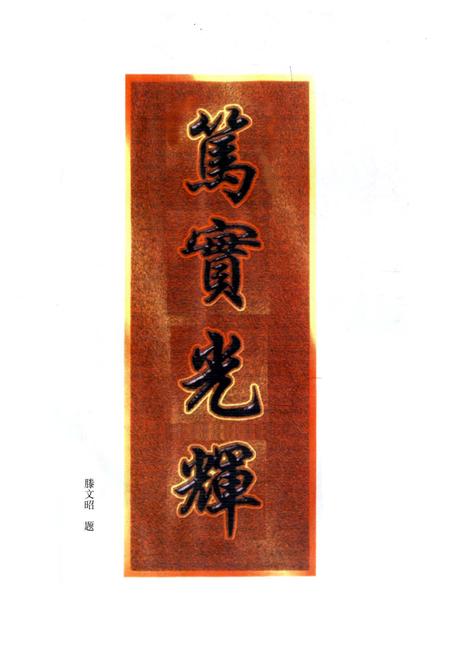 篤實光輝
滕文昭 题